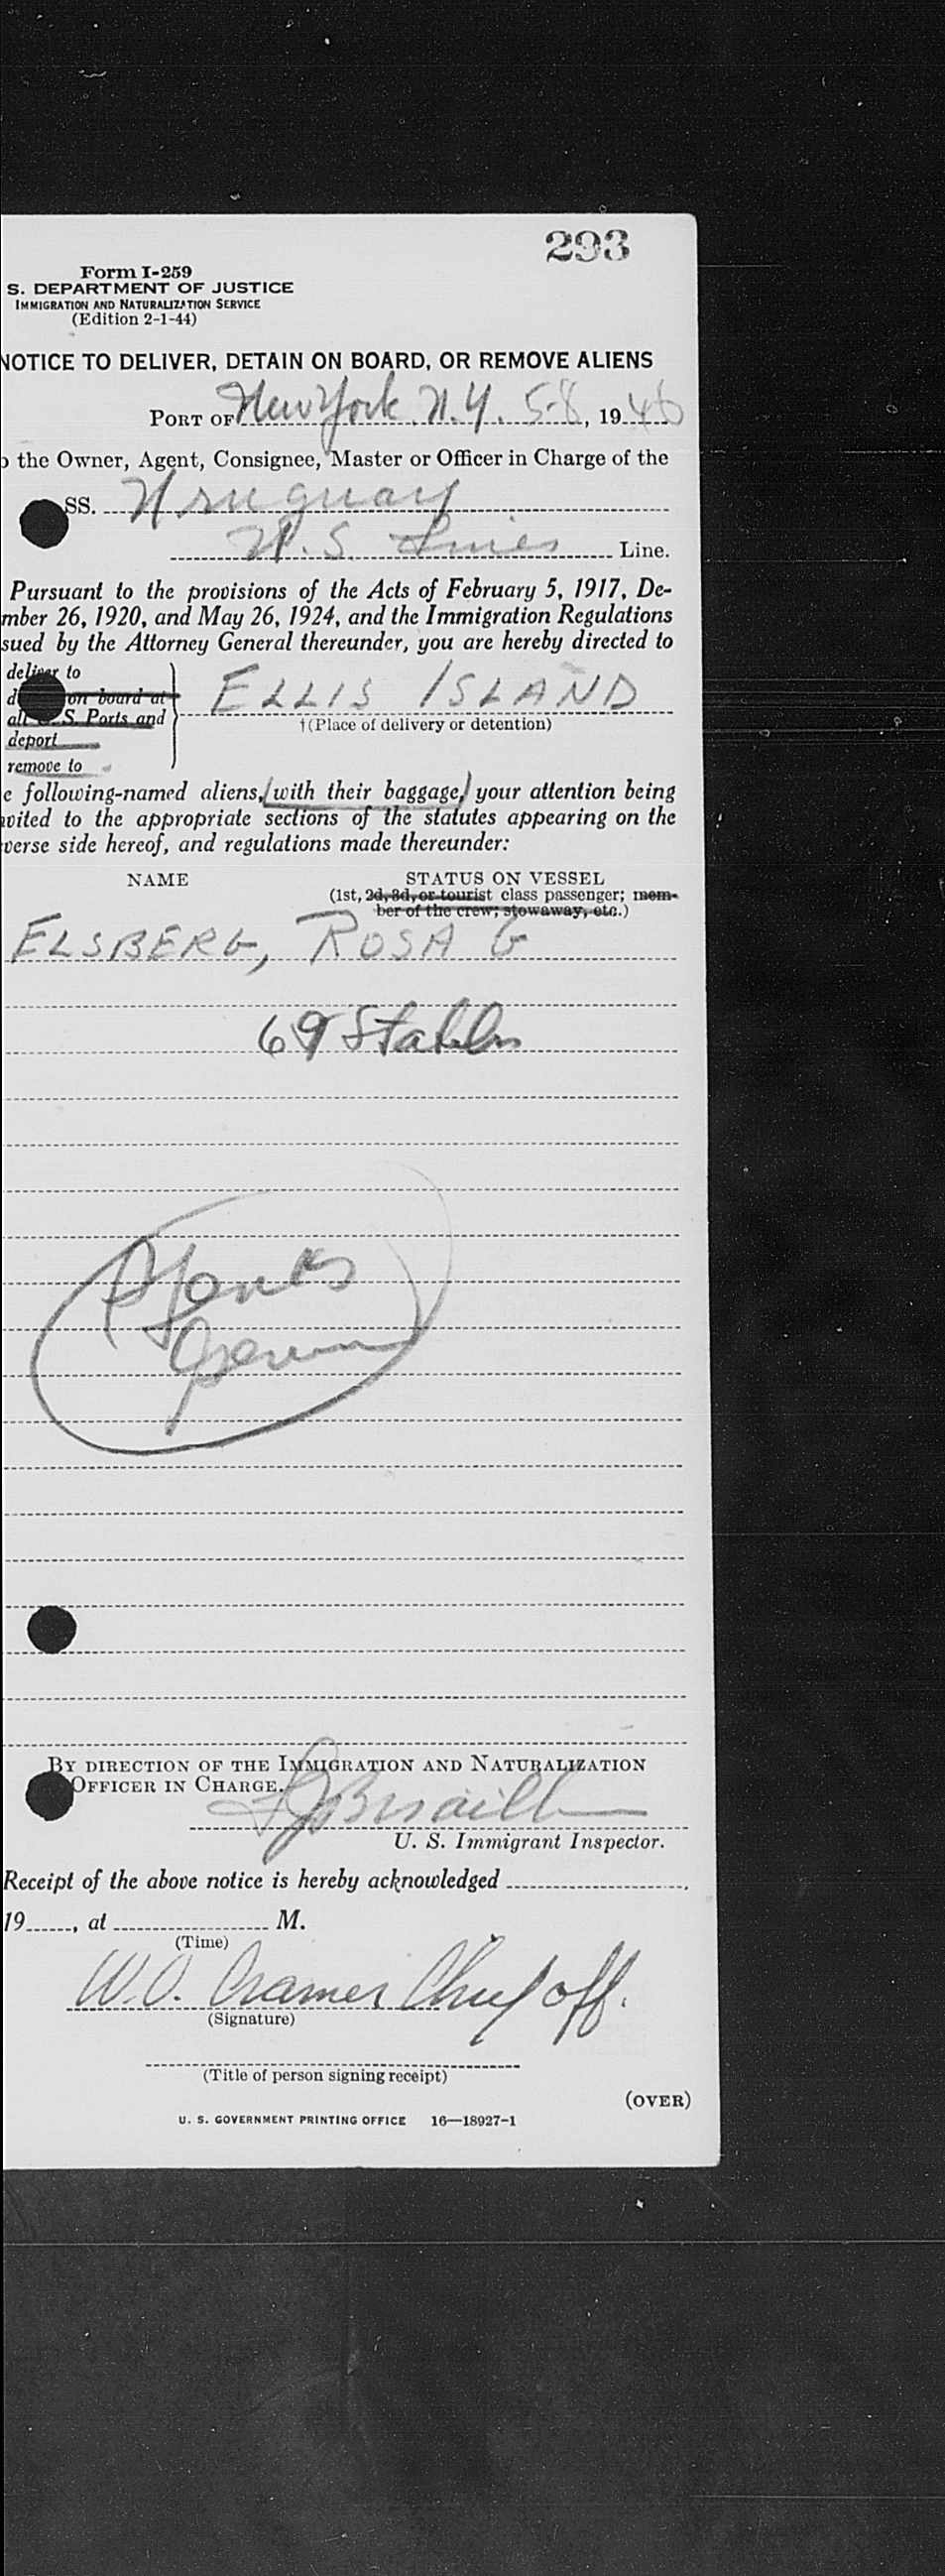 293
Form I-259
S. DEPARTMENT OF JUSTICE
IMMIGRATION AND NATURALIZATION SERVICE
(Edition 2-1-44)
NOTICE TO DELIVER, DETAIN ON BOARD, OR REMOVE ALIENS
PORT OF New York N.Y. 5-8, 1946
o the Owner, Agent, Consignee, Master or Officer in Charge of the
SS. Uruguay
U.S. Lines Line.
Pursuant to the provisions of the Acts of February 5, 1917, De-
mber 26, 1920, and May 26, 1924, and the Immigration Regulations
sued by the Attorney General thereunder, you are hereby directed to
deliver to
on board at
all S. Ports and
deport
remove to
ELLIS ISLAND
†(Place of delivery or detention)
e following-named aliens, (with their baggage,) your attention being
vited to the appropriate sections of the statutes appearing on the
verse side hereof, and regulations made thereunder:
NAME STATUS ON VESSEL
(1st, 2d, 3d, or tourist class passenger; mem-
ber of the crew; stowaway, etc.)
ELSBERG, ROSA G
69
BY DIRECTION OF THE IMMIGRATION AND NATURALIZATION
OFFICER IN CHARGE.
U. S. Immigrant Inspector.
Receipt of the above notice is hereby acknowledged
19 , at M.
(Time)
W.O. Cramer Chief off.
(Signature)
(Title of person signing receipt)
(OVER)
U. S. GOVERNMENT PRINTING OFFICE 16—18927-1